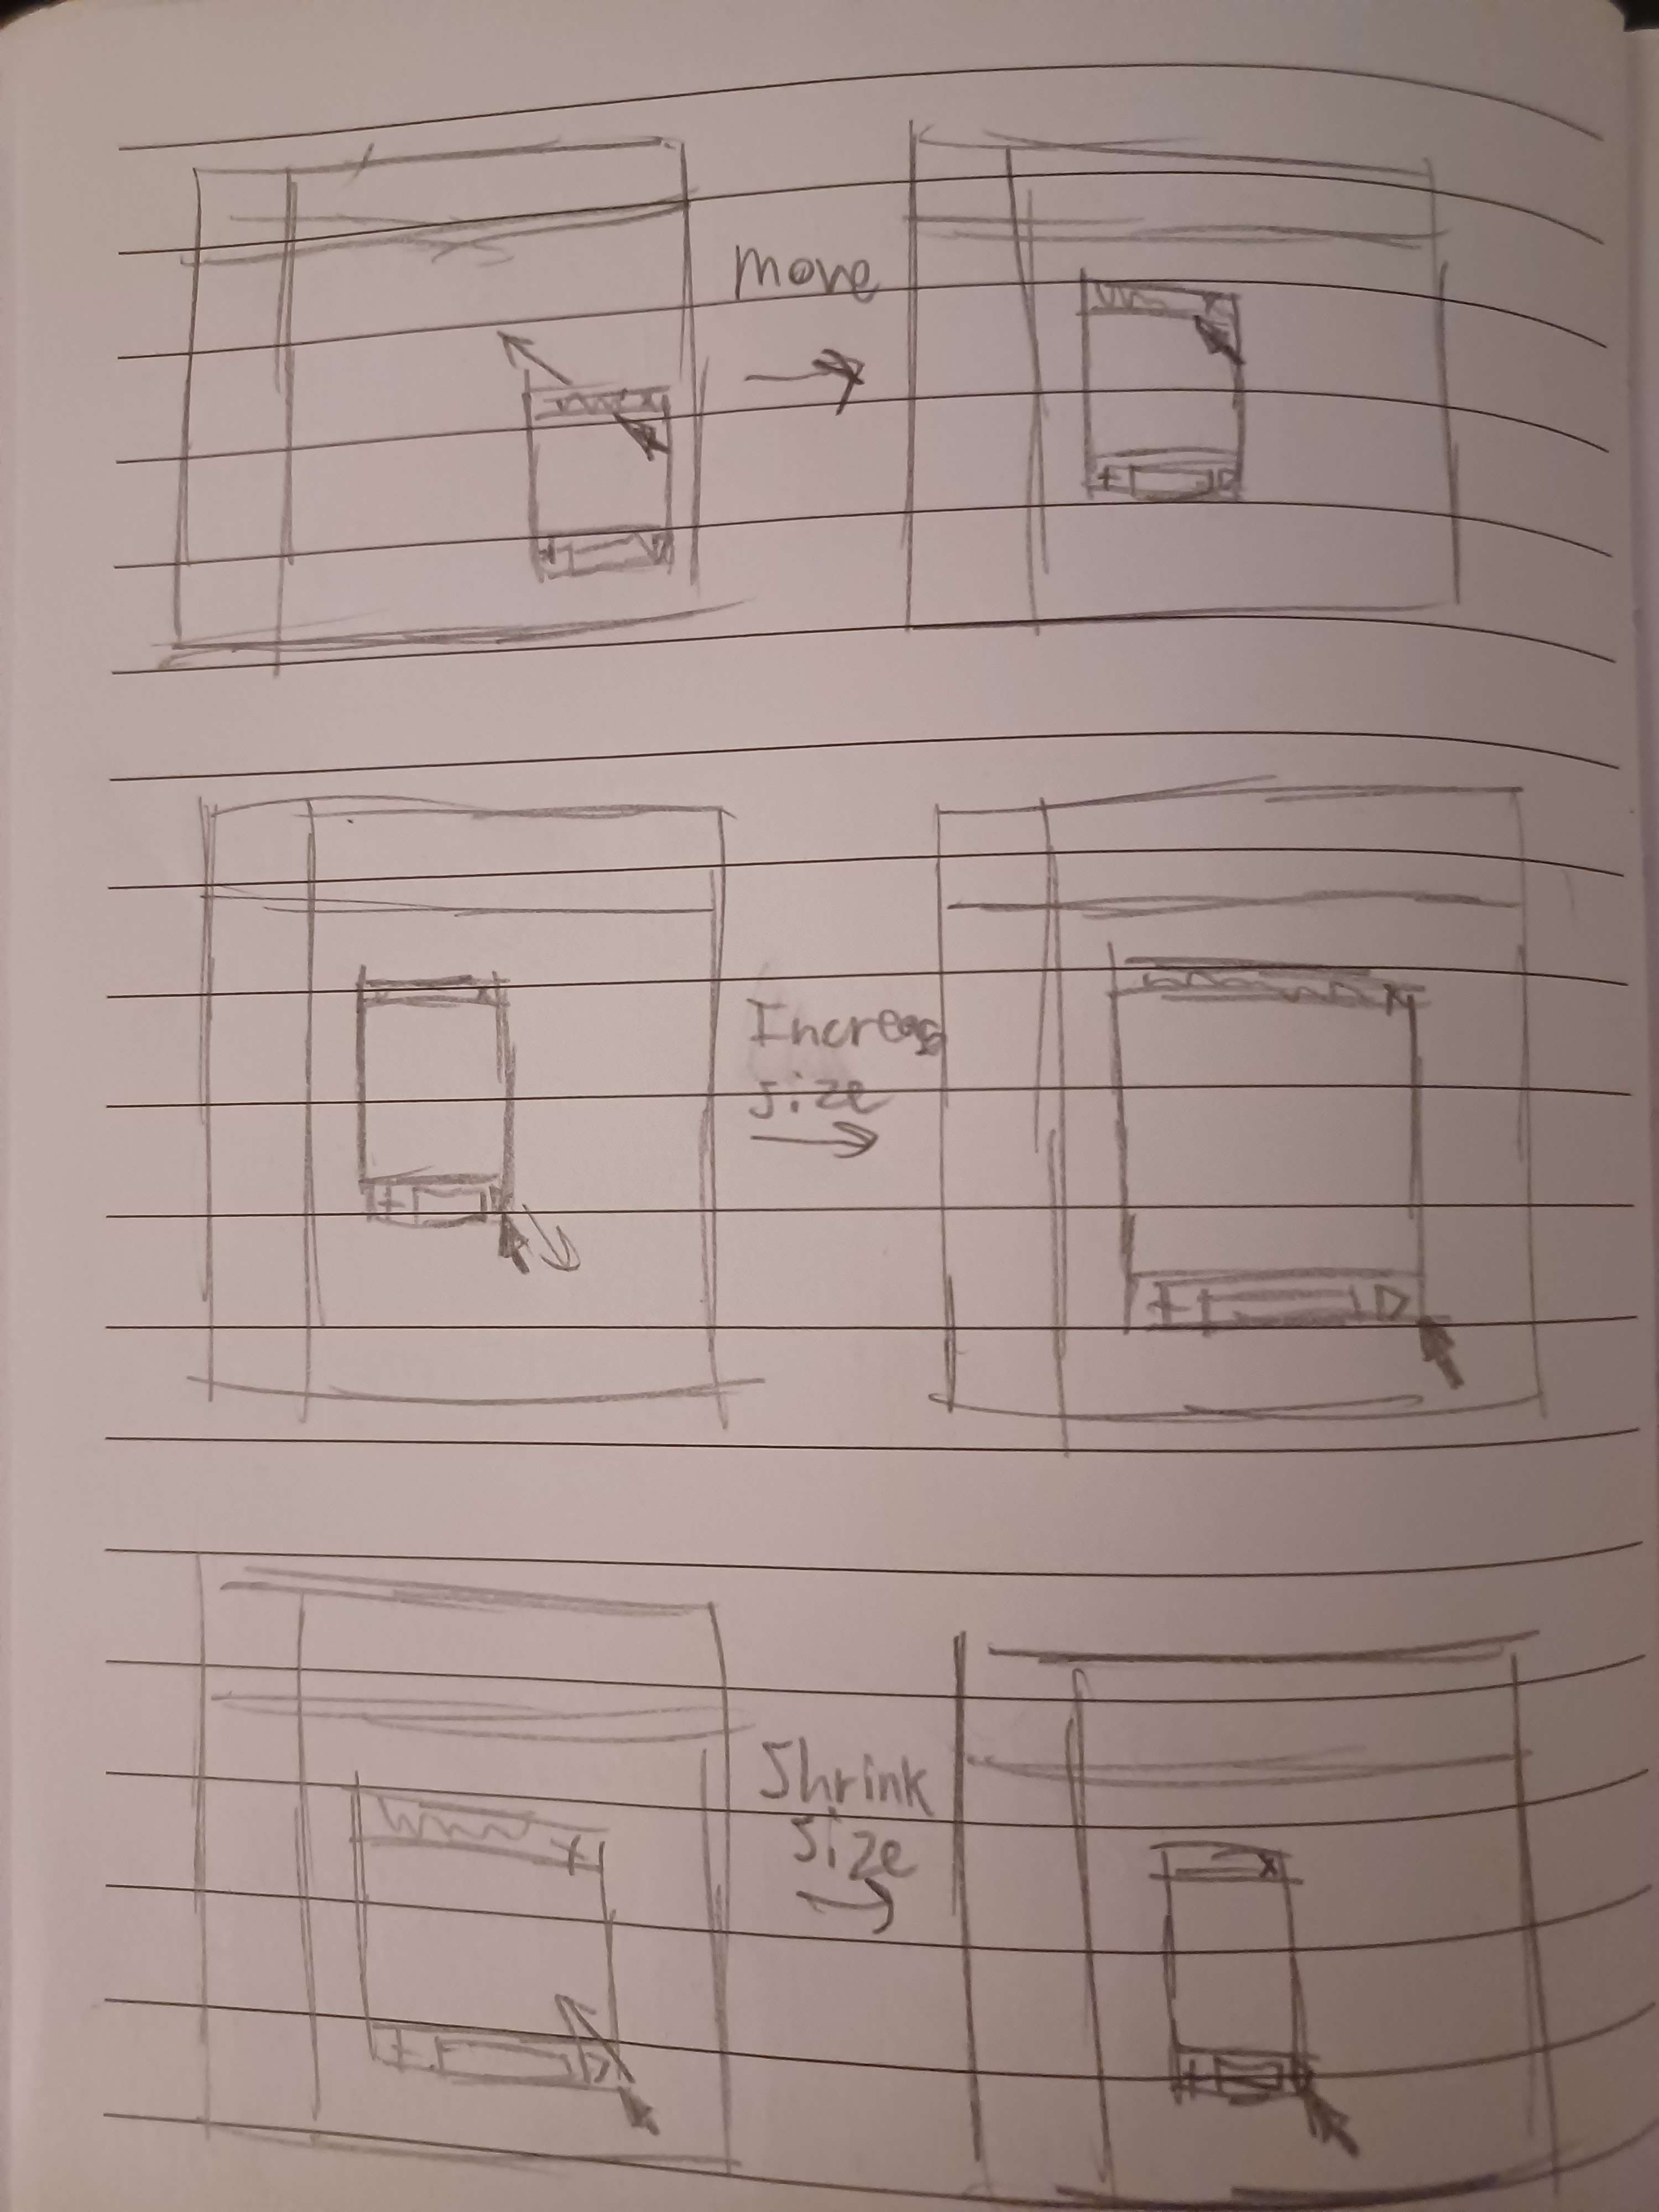 move
Increas
size
Shrink
size